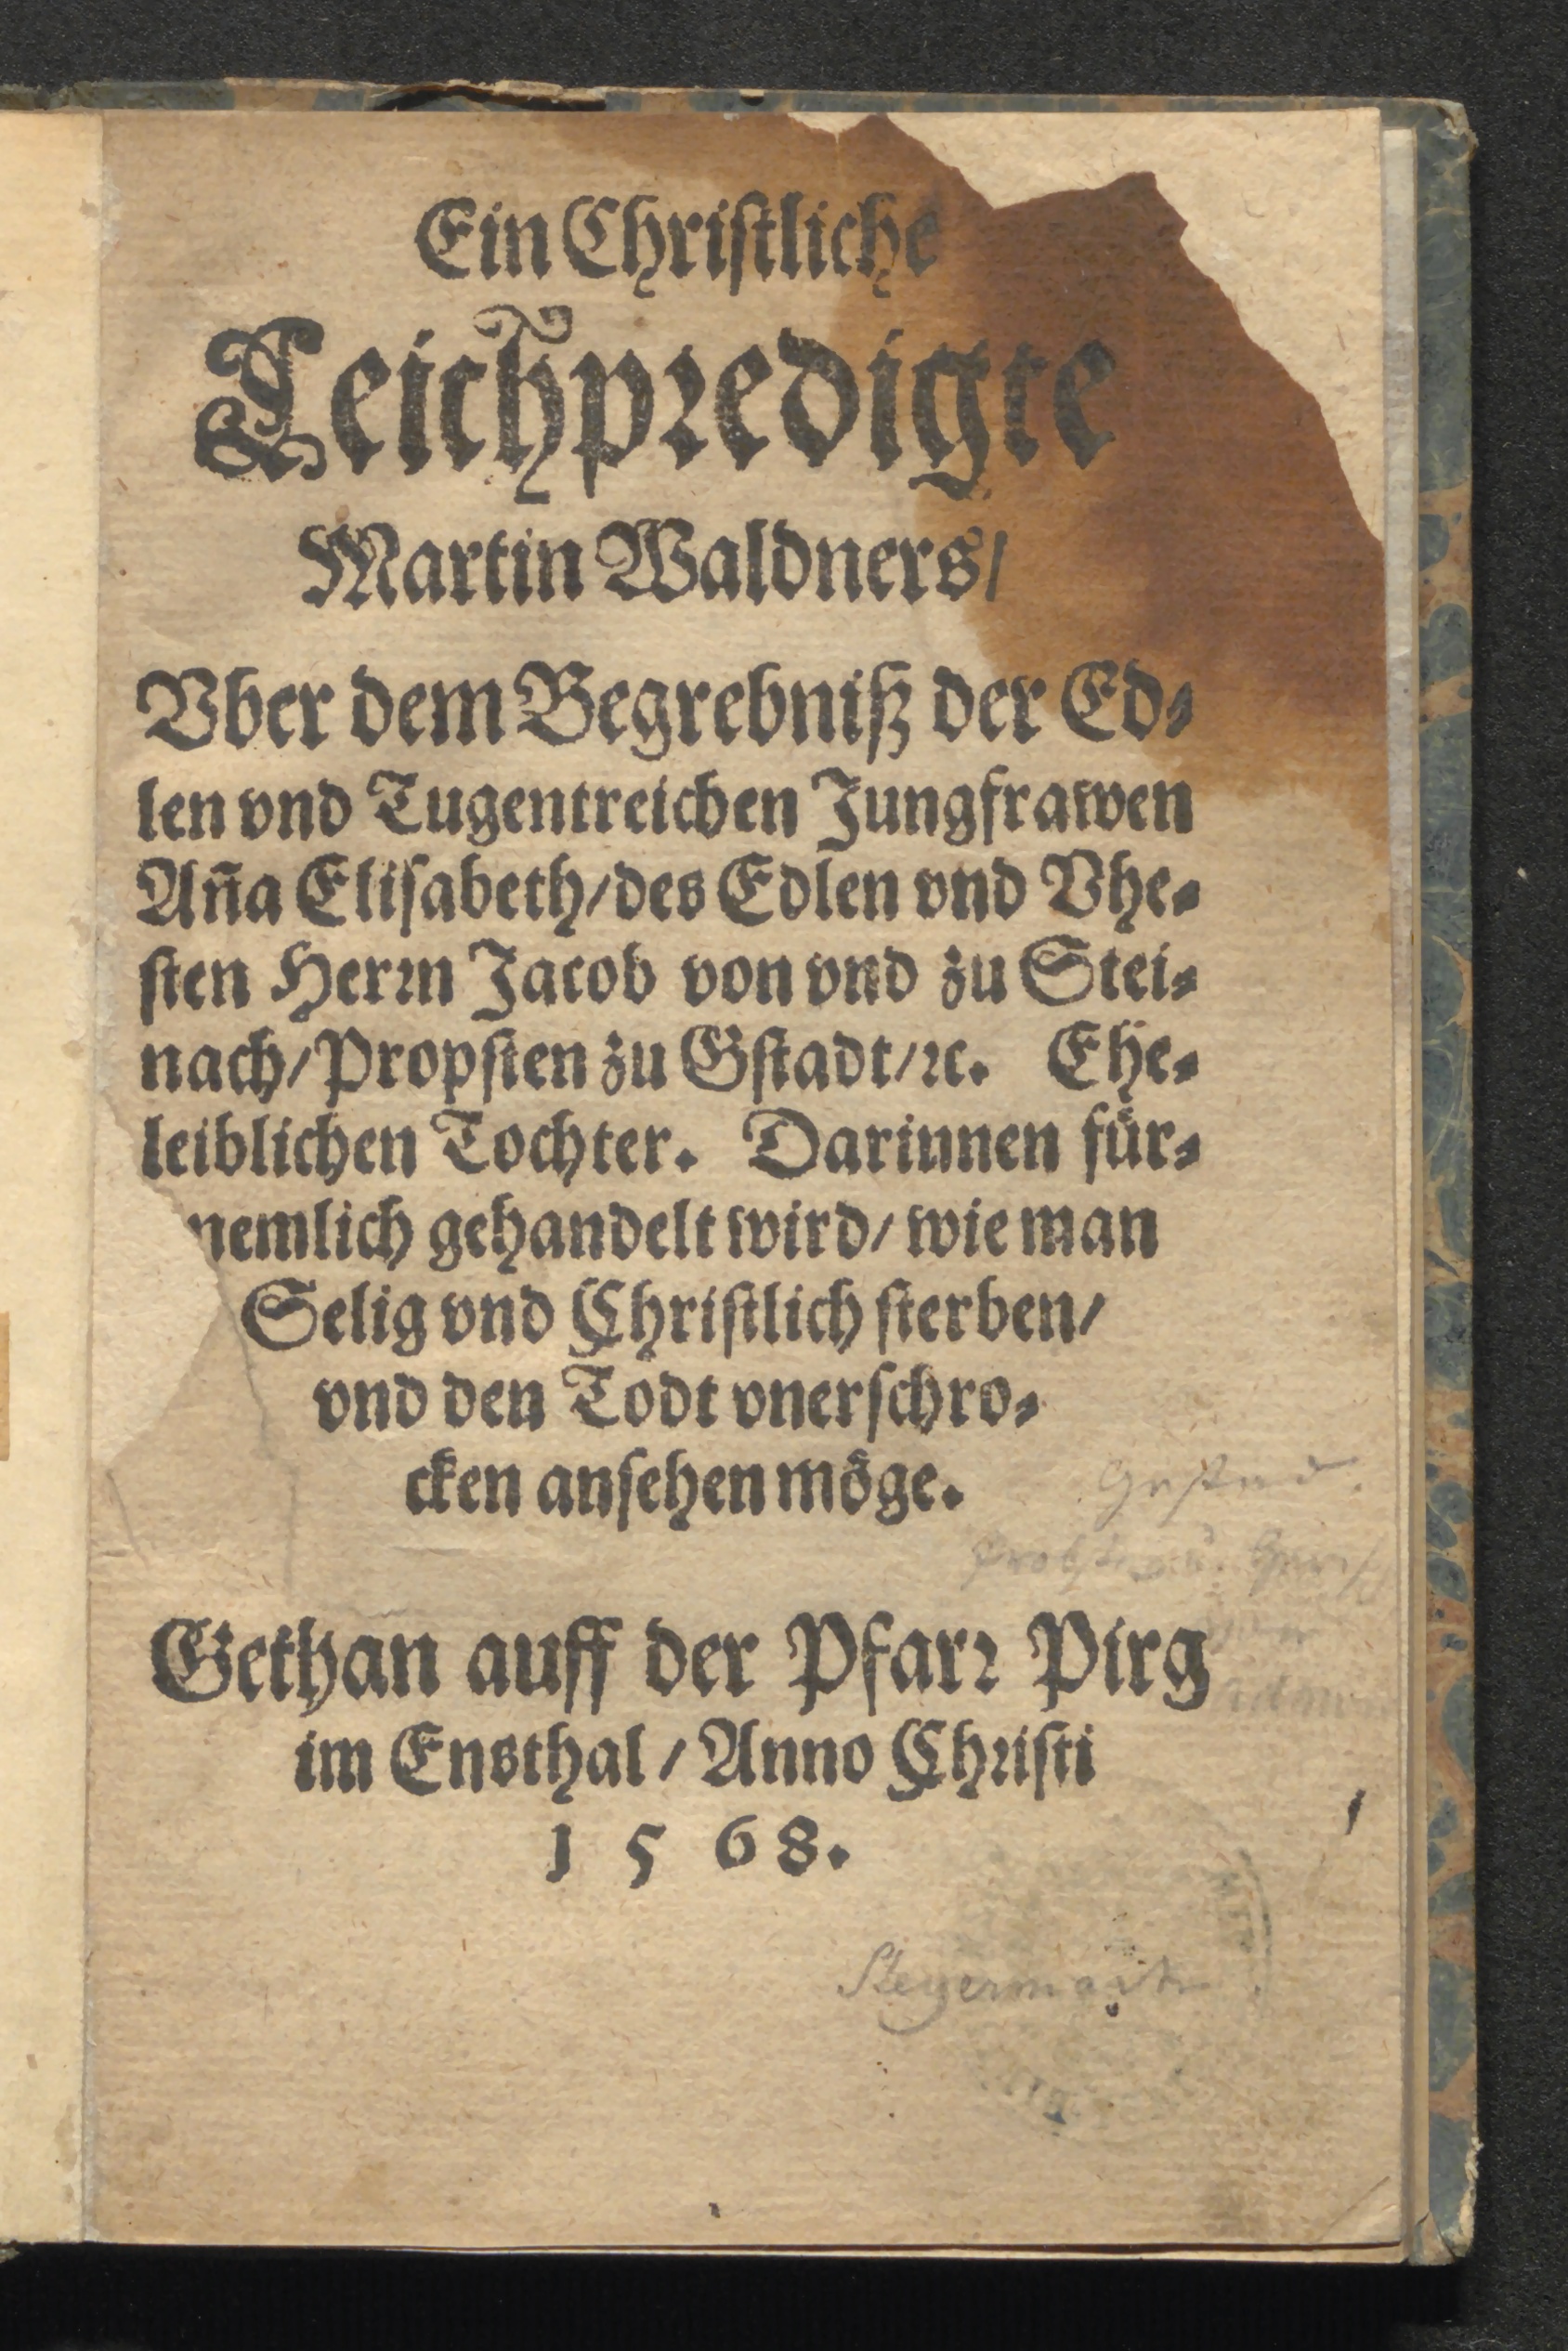 Ein Christliche
Leichpredigte
Martin Waldners/
Vber dem Begrebniß der Ed⸗
len vnd Tugentreichen Jungfrawen
Aña Elisabeth/des Edlen vnd Vhe⸗
sten Herrn Jacob von vnd zu Stei⸗
nach/Propsten zu Gstadt/ꝛc. Ehe⸗
leiblichen Tochter. Darinnen fuͤr⸗
nemlich gehandelt wird/ wie man
Selig vnd Christlich sterben/
vnd den Todt vnerschro⸗
cken ansehen moͤge.
Gethan auff der Pfarr Pirg
im Ensthal / Anno Christi
1568.
Steyermark